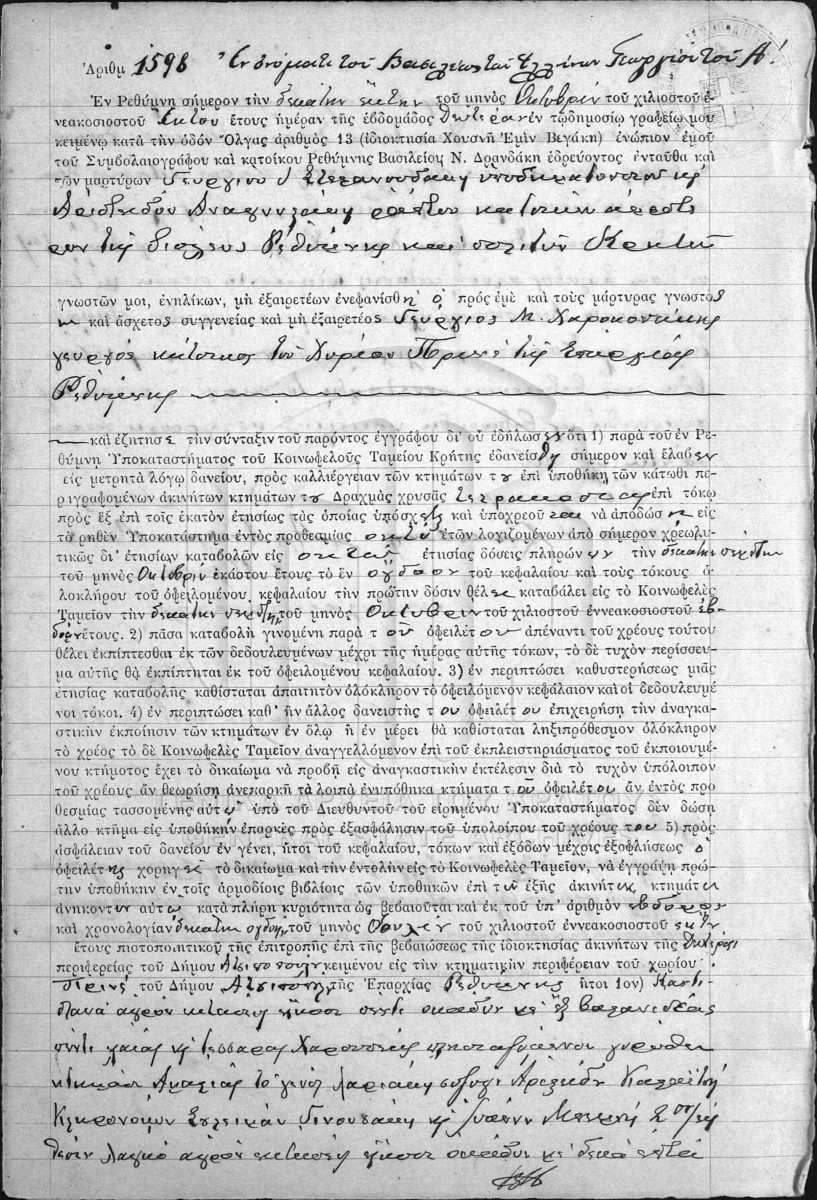 Ἀριθμ 1598 Ἐν ὀνόματι τοῦ Βασιλέως τῶν Ἑλλήνων Γεωργίου τοῦ Α!
Ἐν Ρεθύμνῃ σήμερον τὴν δεκάτην ἕκτην τοῦ μηνὸς Ὀκτωβρίου τοῦ χιλιοστοῦ ἐ-
νεακοσιοστοῦ ἕκτου ἔτους ἡμέραν τῆς ἑβδομάδος Δευτέραν ἐν τῷ δημοσίῳ γραφείῳ μου
κειμένῳ κατὰ τὴν ὁδὸν Ὄλγας ἀριθμὸς 13 (ἰδιοκτησία Χουσνῆ Ἐμὶν Βεγάκη) ἐνώπιον ἐμοῦ
τοῦ Συμβολαιογράφου καὶ κατοίκου Ρεθύμνης Βασιλείου Ν. Δρανδάκη ἑδρεύοντος ἐνταῦθα καὶ
τῶν μαρτύρων Γεωργίου Στεφανουδάκη ὑποδηματοποιοῦ κ
Ἀριστείδου ράπτου κατοίκων ἀμφοτέ
ρων τῆς πόλεως Ρεθύμνης καὶ πολιτῶν Κρητῶν
γνωστῶν μοι, ἐνηλίκων, μὴ ἐξαιρετέων ἐνεφανίσθη ὁ πρός ἐμὲ καὶ τοὺς μάρτυρας γνωστὸς
καὶ ἄσχετος συγγενείας καὶ μὴ ἐξαιρετέος Γεώργιος Μ. Χαροκοπάκης
γεωργὸς κάτοικος τοῦ χωρίου Πρινὲ τῆς ἐπαρχίας
Ρεθύμνης
καὶ ἐζήτησε τὴν σύνταξιν τοῦ παρόντος ἐγγράφου δι' οὗ ἐδήλωσεν ὅτι 1) παρὰ τοῦ ἐν Ρε-
θύμνῃ Ὑποκαταστήματος τοῦ Κοινωφελοῦς Ταμείου Κρήτης ἐδανείσθη σήμερον καὶ ἔλαβεν
εἰς μετρητὰ λόγῳ δανείου, πρὸς καλλιέργειαν τῶν κτημάτων του ἐπὶ ὑποθήκῃ τῶν κάτωθι πε-
ριγραφομένων ἀκινήτων κτημάτων του Δραχμὰς χρυσᾶς τετρακοσίας ἐπὶ τόκῳ
πρὸς ἓξ ἐπὶ τοῖς ἑκατὸν ἐτησίως τὰς ὁποίας ὑπόσχεται καὶ ὑποχρεοῦται νὰ ἀποδώσῃ εἰς
τὸ ρηθὲν Ὑποκατάστημα ἐντὸς προθεσμίας ὀκτὼ ἐτῶν λογιζομένων ἀπὸ σήμερον χρεωλυ-
τικῶς δι' ἐτησίων καταβολῶν εἰς ὀκτὼ ἐτησίας δόσεις πληρωνων τὴν δεκάτην πέμπτην
τοῦ μηνὸς Ὀκτωβρίου ἑκάστου ἔτους τὸ ἓν ὄγδοον τοῦ κεφαλαίου καὶ τοὺς τόκους ὁ-
λοκλήρου τοῦ ὀφειλομένου κεφαλαίου τὴν πρώτην δόσιν θέλει καταβάλει εἰς τὸ Κοινωφελὲς
Ταμεῖον τὴν δεκάτην πέμπτην τοῦ μηνὸς Ὀκτωβρίου τοῦ χιλιοστοῦ ἐννεακοσιοστοῦ ἑβ-
δόμου ἔτους. 2) πᾶσα καταβολὴ γινομένη παρὰ τοῦ ὀφειλέτου ἀπέναντι τοῦ χρέους τούτου
θέλει ἐκπίπτεσθαι ἐκ τῶν δεδουλευμένων μέχρι τῆς ἡμέρας αὐτῆς τόκων, τὸ δὲ τυχὸν περίσσευ-
μα αὐτῆς θὰ ἐκπίπτηται ἐκ τοῦ ὀφειλομένου κεφαλαίου. 3) ἐν περιπτώσει καθυστερήσεως μιᾶς
ἐτησίας καταβολῆς καθίσταται ἀπαιτητὸν ὁλόκληρον τὸ ὀφειλόμενον κεφάλαιον καὶ οἱ δεδουλευμέ
νοι τόκοι. 4) ἐν περιπτώσει καθ' ἣν ἄλλος δανειστὴς τοῦ ὀφειλέτου ἐπιχειρήσῃ τὴν ἀναγκα-
στικὴν ἐκποίησιν τῶν κτημάτων ἐν ὅλῳ ἢ ἐν μέρει θὰ καθίσταται ληξιπρόθεσμον ὁλόκληρον
τὸ χρέος τὸ δὲ Κοινωφελὲς Ταμεῖον ἀναγγελλόμενον ἐπὶ τοῦ ἐκπλειστηριάσματος τοῦ ἐκποιουμέ-
νου κτήματος ἔχει τὸ δικαίωμα νὰ προβῇ εἰς ἀναγκαστικὴν ἐκτέλεσιν διὰ τὸ τυχὸν ὑπόλοιπον
τοῦ χρέους ἂν θεωρήσῃ ἀνεπαρκῆ τὰ λοιπὰ ἐνυπόθηκα κτήματα τοῦ ὀφειλέτου ἂν ἐντὸς προ
θεσμίας τασσομένης αὐτῷ ὑπὸ τοῦ Διευθυντοῦ τοῦ εἰρημένου Ὑποκαταστήματος δὲν δώσῃ
ἄλλο κτῆμα εἰς ὑποθήκην ἐπαρκὲς πρὸς ἐξασφάλησιν τοῦ ὑπολοίπου τοῦ χρέους του 5) πρὸς
ἀσφάλειαν τοῦ δανείου ἐν γένει, ἤτοι τοῦ κεφαλαίου, τόκων καὶ ἐξόδων μέχρις ἐξοφλήσεως ὁ
ὀφειλέτης χορηγεῖ τὸ δικαίωμα καὶ τὴν ἐντολὴν εἰς τὸ Κοινωφελὲς Ταμεῖον, νὰ ἐγγράψῃ πρώ-
την ὑποθήκην ἐν τοῖς ἁρμοδίοις βιβλίοις τῶν ὑποθηκῶν ἐπὶ τῶν ἑξῆς ἀκινήτων κτημάτων
ἀνηκόντων αὐτῷ κατὰ πλήρη κυριότητα ὡς βεβαιοῦται καὶ ἐκ τοῦ ὑπ' ἀριθμὸν
καὶ χρονολογίαν δεκάτην ὀγδόην τοῦ μηνὸς Ἰουλίου τοῦ χιλιοστοῦ ἐννεακοσιοστοῦ ἕκτου
ἔτους πιστοποιητικοῦ τῆς ἐπιτροπῆς ἐπὶ τῆς βεβαιώσεως τῆς ἰδιοκτησίας ἀκινήτων τῆς
περιφερείας τοῦ Δήμου Ἀτσιποπούλου κειμένου εἰς τὴν κτηματικὴν περιφέρειαν τοῦ χωρίου
Πρινὲ τοῦ Δήμου Ἀτσιποπούλου τῆς Ἐπαρχίας Ρεθύμνης ἤτοι 1ον)
ἀγρὸν ἐκτάσεως εἴκοσι πέντε μὲ ἓξ βαλανιδέας
πέντε ἐλαίας κ τέσσαρας χαρουπέας πλησιαζόμενον γύρωθεν
Ἀμαλίας τὸ γένος συζύγου
Κληρονόμων Σουλεϊμὰν κ Ἰωάννου 2
θέσιν ἀγρὸν ἐκτάσεως εἴκοσι μὲ δέκα ἑπτὰ